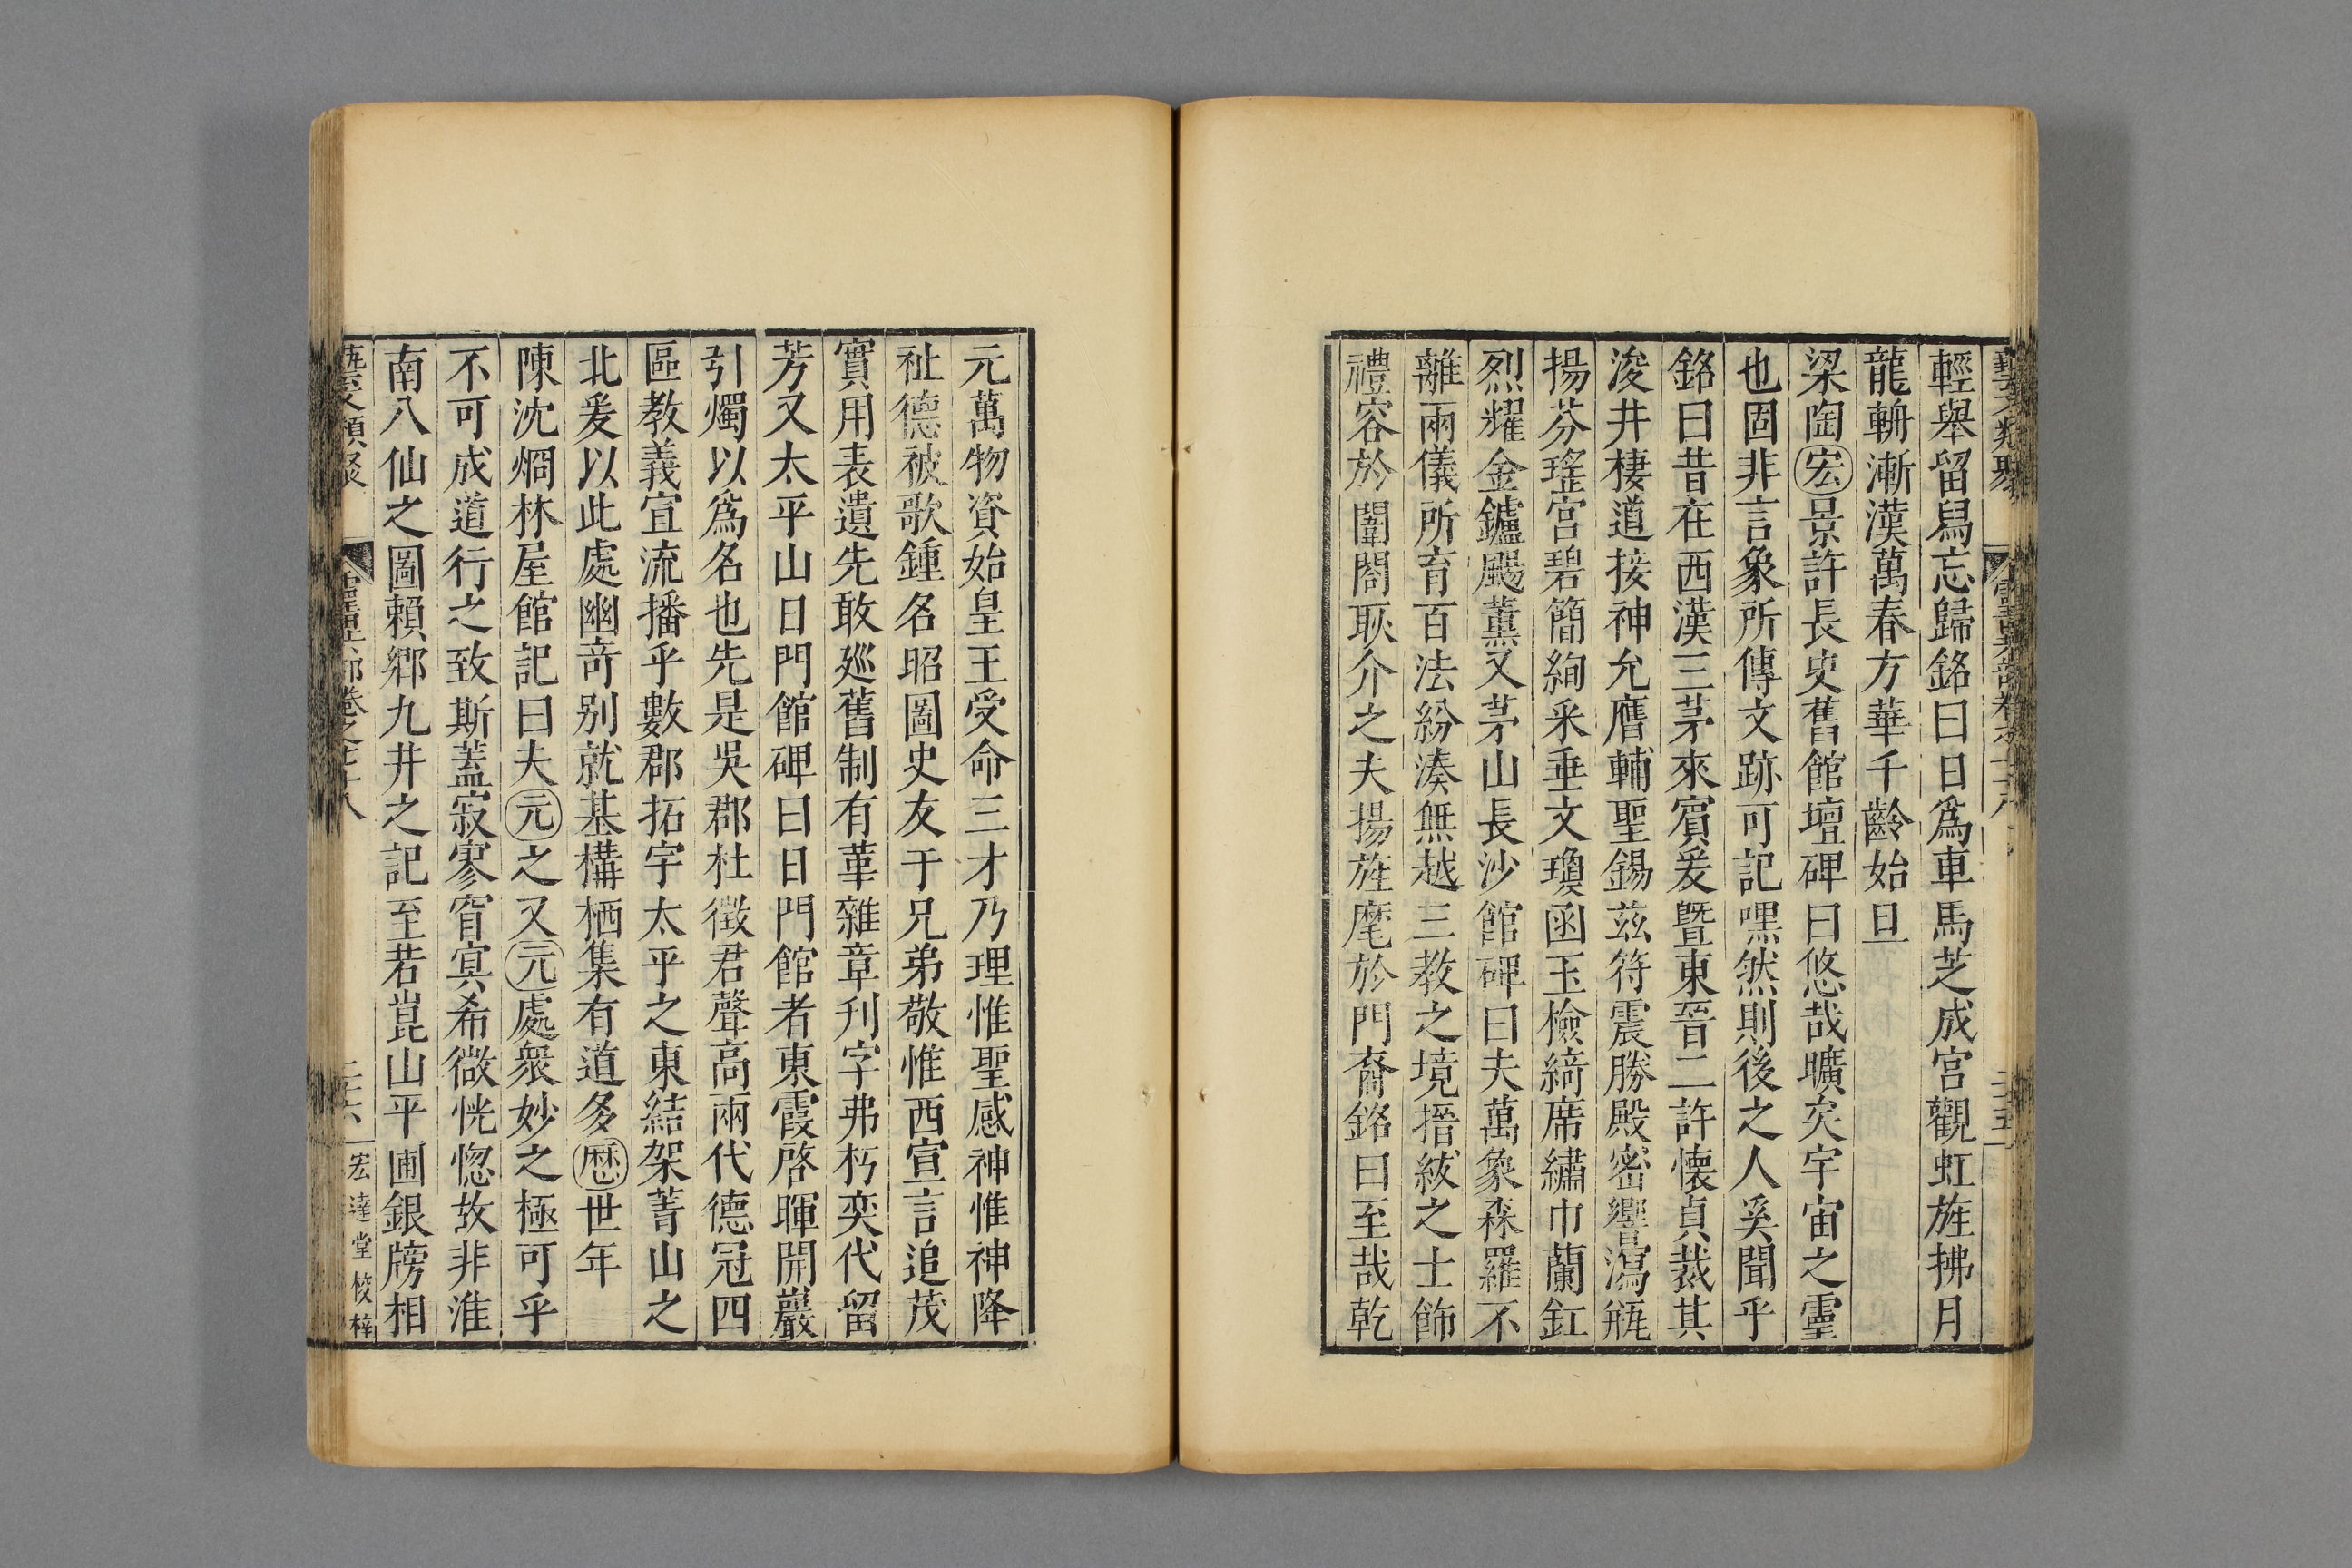 藝文類聚
輕舉留舄忘歸銘曰日爲車馬芝成宮觀虹旌拂月
龍輈漸漢萬春方華千齡始旦
梁陶宏景許長史舊館壇碑曰悠哉曠矣宇宙之靈
也固非言象所傳文跡可記嘿然則後之人奚聞乎
銘曰昔在西漢三茅來賓爰曁東晉二許懷貞裁其
浚井棲道接神允膺輔聖錫茲符震勝殿密響瀉瓶
揚芬瑤宮碧簡絢采垂文瓊函玉檢綺席繡巾蘭釭
烈耀金鑪颺薰又茅山長沙館碑曰夫萬象森羅不
離兩儀所育百法紛湊無越三教之境搢紱之士飾
禮容於闈閤耿介之夫揚旌麾於門裔銘曰至哉乾
元萬物資始皇王受命三才乃理惟聖感神惟神降
祉德被歌鍾名昭圖史友于兄弟敬惟西宣言追茂
實用表遺先敢廵舊制有革雜章刋字弗朽奕代留
芳又太平山日門館碑曰日門館者東霞啓暉開巖
引燭以爲名也先是吳郡杜徵君聲高兩代德冠四
區教義宣流播乎數郡拓宇太平之東結架菁山之
北爰以此處幽奇别就基構栖集有道多歷世年
陳沈烱林屋館記曰夫元之又元處衆妙之極可乎
不可成道行之致斯蓋寂寥窅冥希微恍惚故非淮
南八仙之圖賴鄉九井之記至若崑山平圃銀牓相
藝文類聚 靈異部卷之七十八 二十六 宏達堂校梓